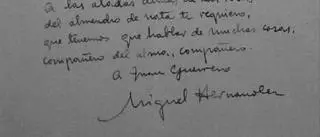 A las aladas almas de las rosas
del almendro de nata te requiero,
que tenemos que hablar de muchas cosas,
compañero del alma, compañero.
A Juan Guerrero
Miguel Hernandez